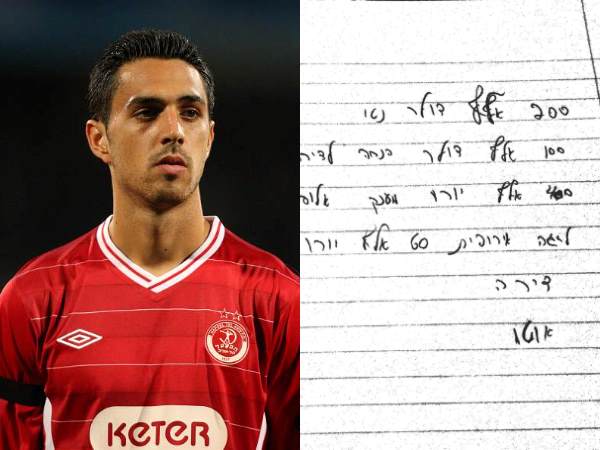 KETER
200 אלף דולר נטו
100 אלף דולר הנחה לדיר
אלף יורו מענק אלופ
ליגה אירופית אלף יורו
דירה
אוטו